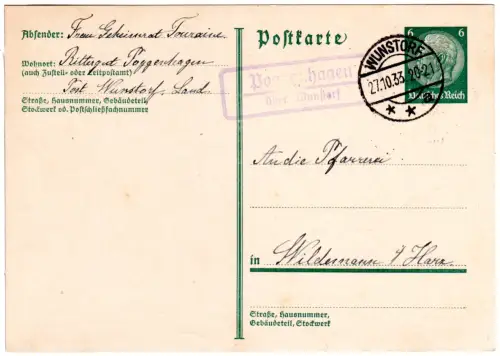 Absender: Frau Geheimrat Touraine
Wohnort: Rittergut Poggenhagen
(auch Zustell- oder Leitpostamt)
Post Wunstorf, Land
Straße, Hausnummer, Gebäudeteil,
Stockwerk od. Postschließfachnummer
Postkarte
Poggenhagen
über Wunstorf
WUNSTORF
27.10.33. 20-21
* a *
6 6
Deutsches Reich
An die Pfarrerei
in Wildemann i/ Harz
Straße, Hausnummer,
Gebäudeteil, Stockwerk